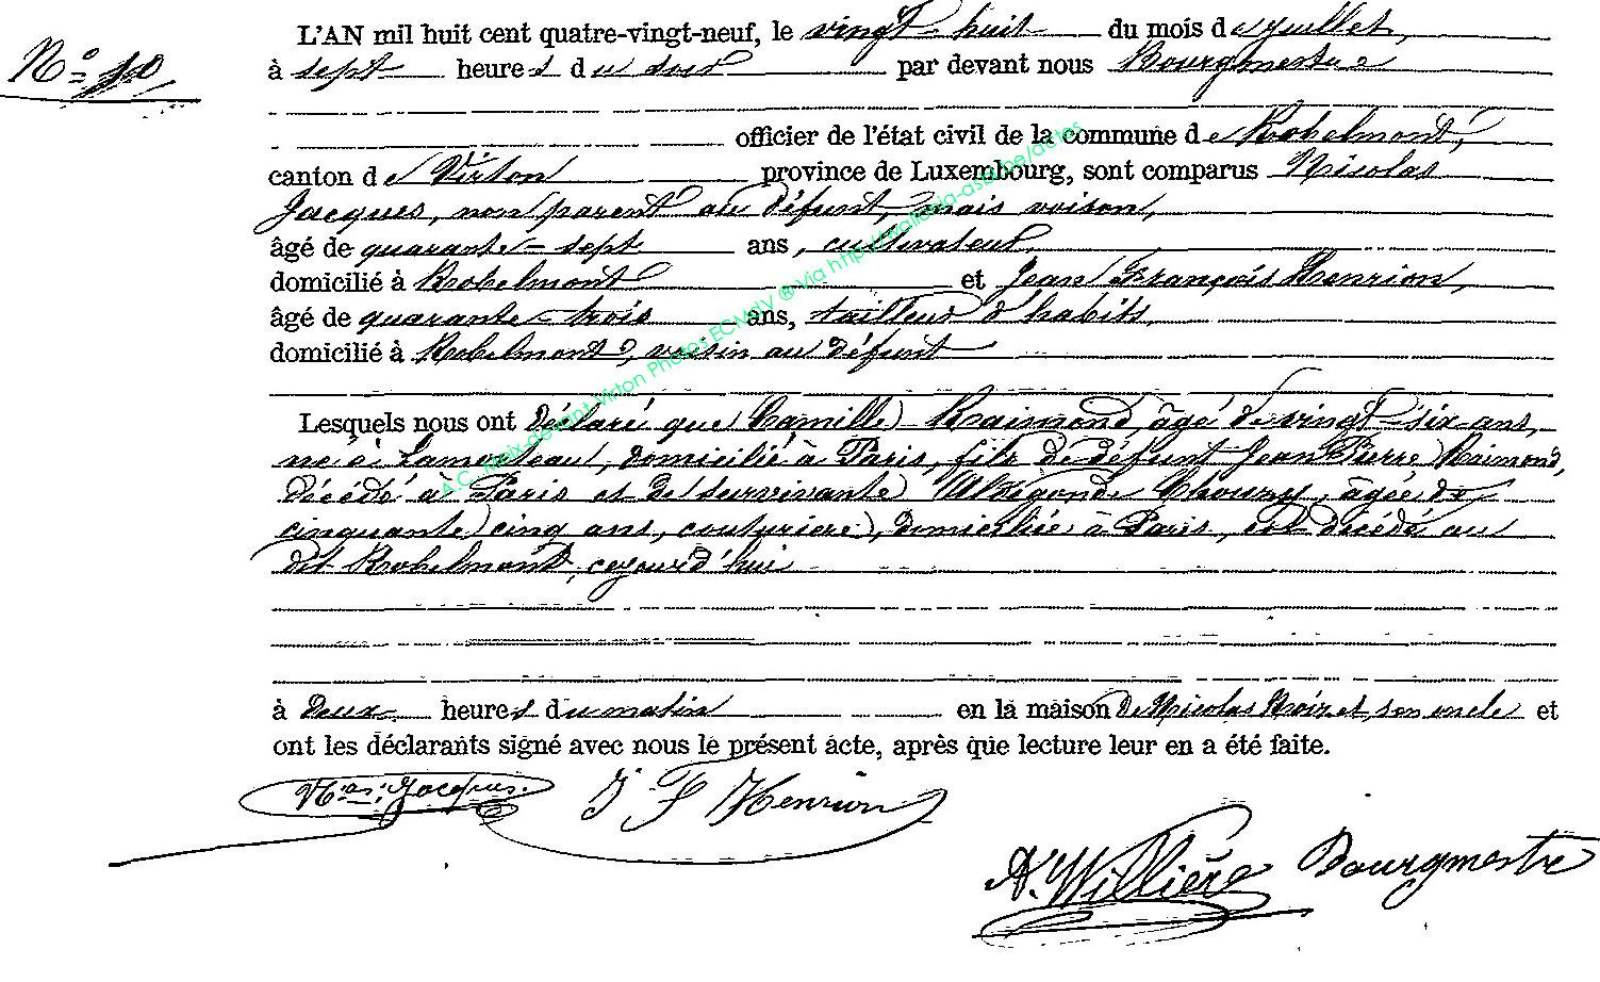 L'AN mil huit cent quatre-vingt-neuf, le vingt-huit du mois de juillet,
N° 10
à sept heures du soir par devant nous Bourgmestre
officier de l'état civil de la commune de Robelmont,
canton de Virton province de Luxembourg, sont comparus Nicolas
Jacques, non parent au défunt, mais voison,
âgé de quarante-sept ans, cultivateur,
domicilié à Robelmont et Jean François Henrion,
âgé de quarante-trois ans, tailleur d'habits,
domicilié à Robelmont, voisin au défunt
Lesquels nous ont déclaré que Camille Raimond, âgé de vingt-six ans,
né à Lamorteau, domicilié à Paris, fils de défunt Jean Pierre Raimond,
décédé à Paris et de survivante Aldegonde Thoury, âgée de
cinquante cinq ans, couturière, domiciliée à Paris, est décédé au
dit Robelmont, cejourd'hui
à deux heures du matin en la maison de Nicolas Noizet, son oncle et
ont les déclarants signé avec nous le présent acte, après que lecture leur en a été faite.
Nas. Jacques. J F Henrion
N. Willière Bourgmestre
A.C. Meix-devant-Virton Photos ECMdV ® Via http://wallonia-asbl.be/actes